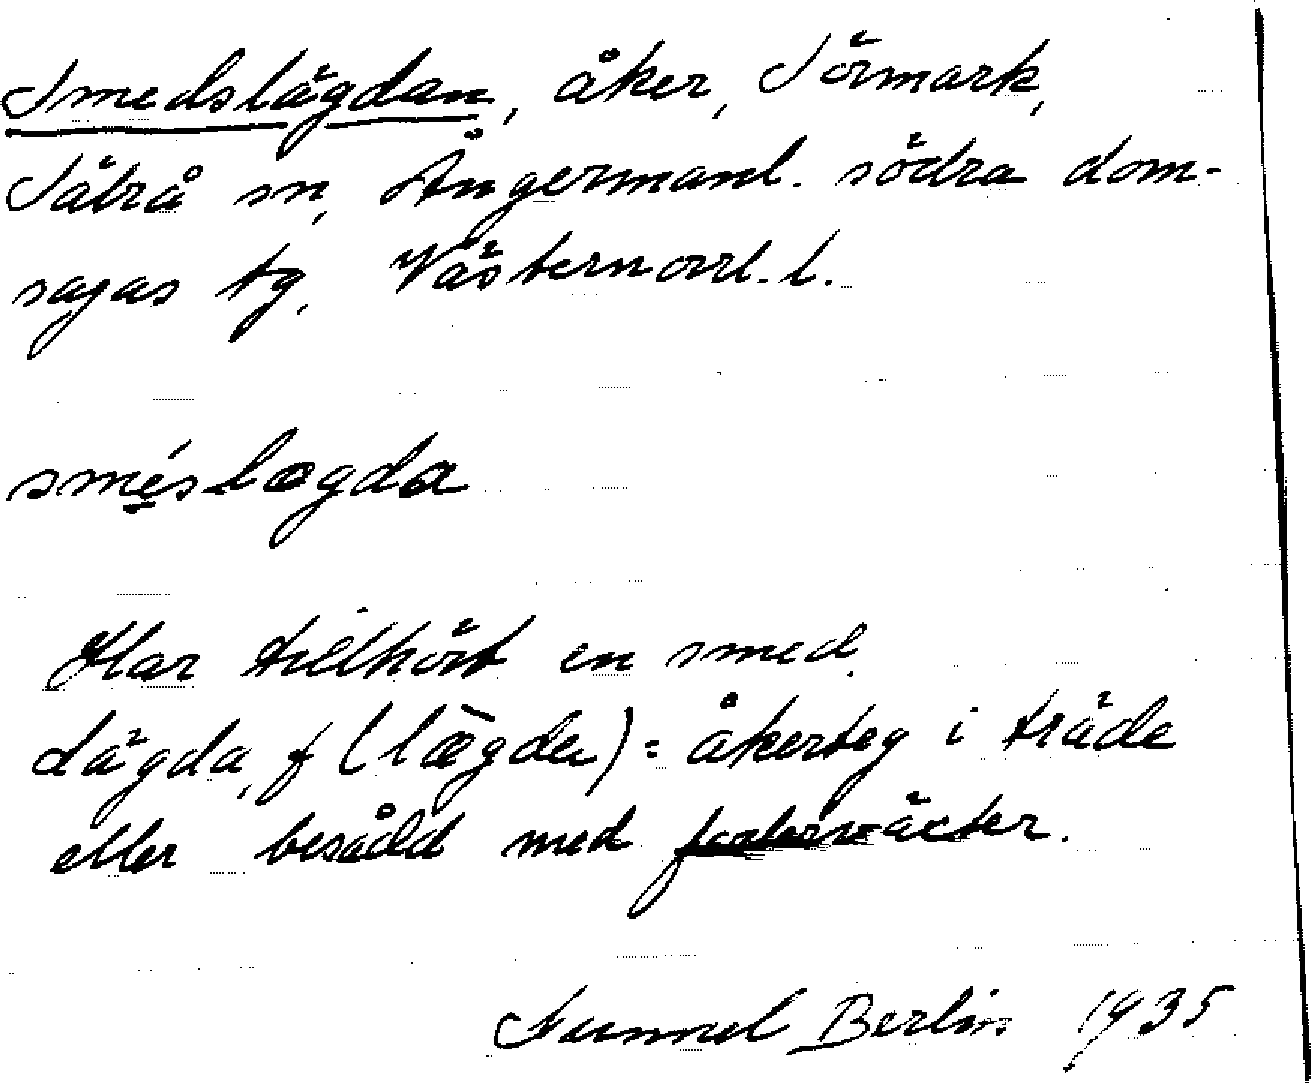 Smedslägdan, åker, Sörmark,
Sätrå sn, Ångermanl. södra dom-
sagas tg, Västernorrl. l.
smẹ́slægda
Har tillhört en smed.
Lägda, f (læ̀gda) = åkerteg i träde
eller besådd med foderväxter.
Berlin 1935